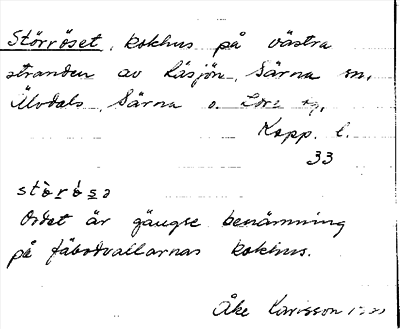 Störröset, kokhus på västra
stranden av Läsjön, Särna sn,
Älvdals, Särna o. Idre tg,
Kopp. l.
33
Ordet är gängse benämning
på fäbodvallarnas kokhus.
Åke Karisson